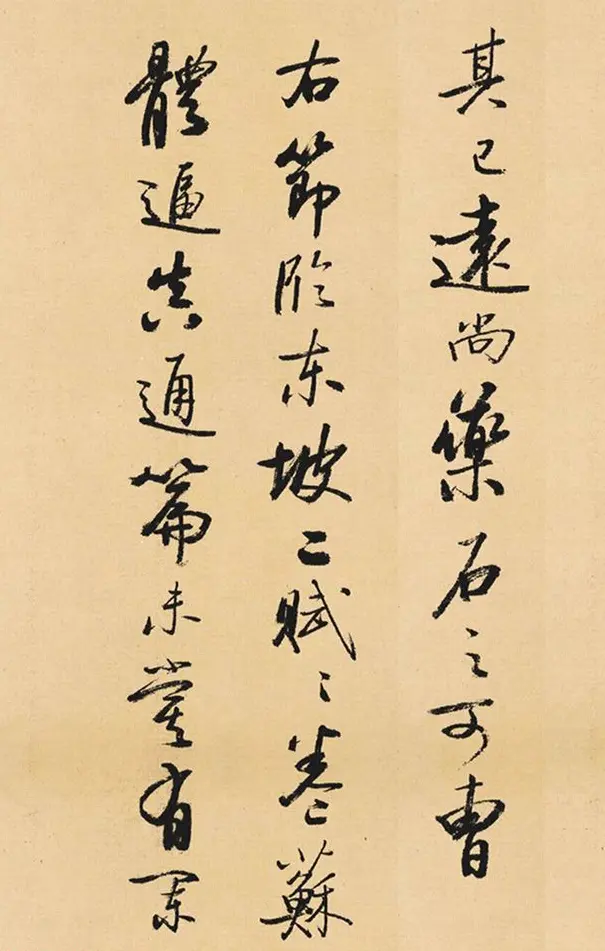 其已遠尚藥石之可曹
右節臨東坡二賦〻卷蘇
體逼真通篇未嘗有